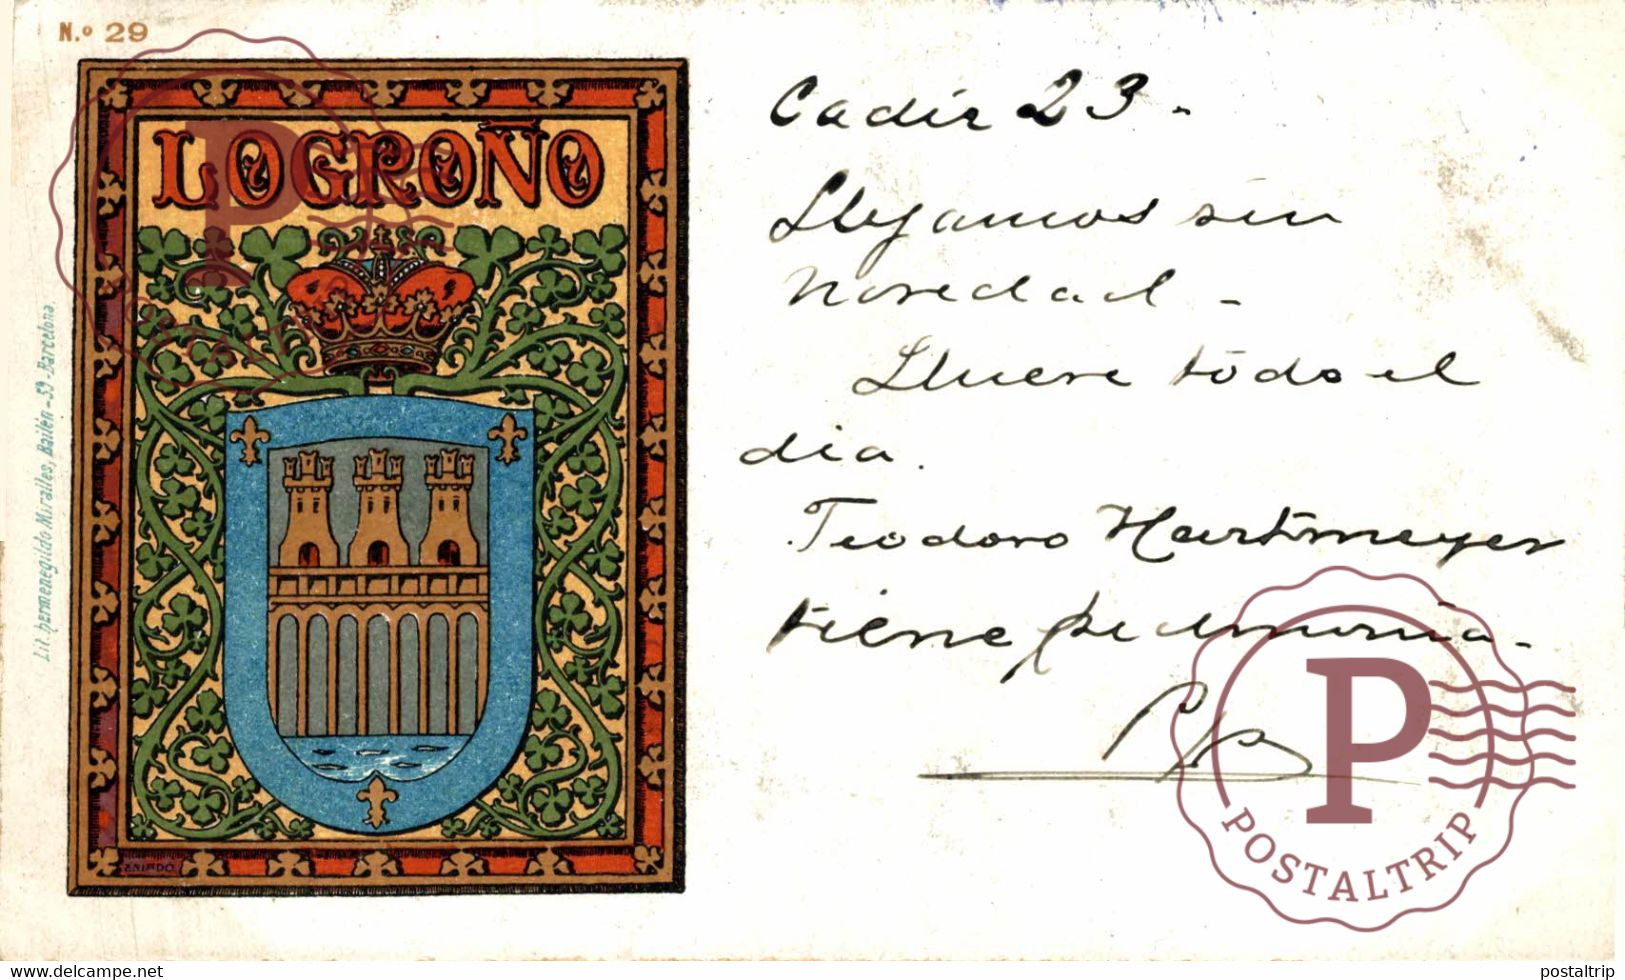 N.º 29
LOGROÑO
Lit. Hermenegildo Miralles, Bailén-59-Barcelona.
Cadiz 23-
Llegamos sin
novedad -
Llueve todo el
dia.
Teodoro Hartmeyer
tiene pulmonia.
POSTALTRIP
P
POSTALTRIP
P
www.delcampe.net
postaltrip